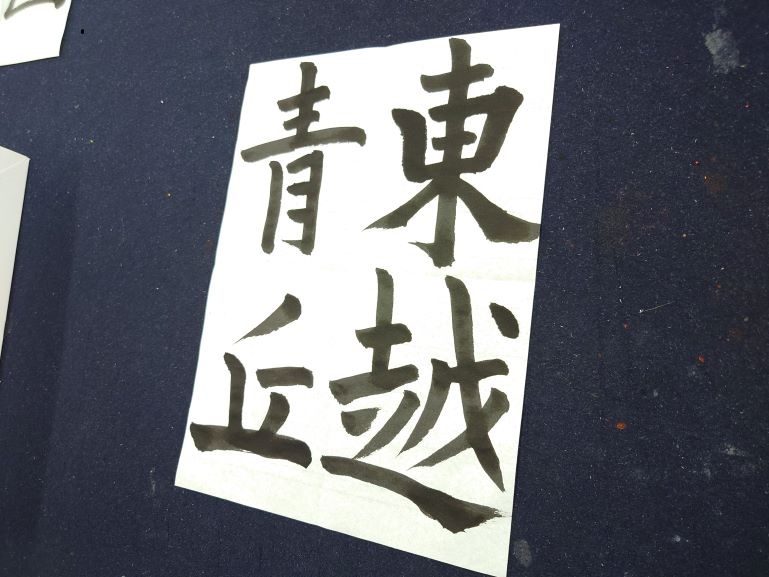 東越
青丘